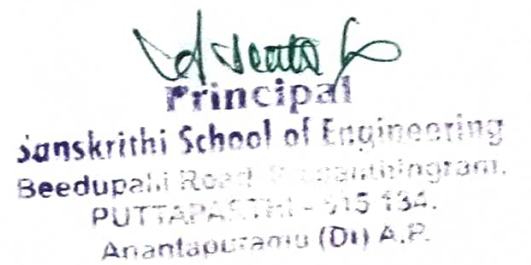 Principal
Sanskrithi School of Engineering
Beedupalli Road
PUTTAPARTHI - 515 134.
Anantapuramu (Dt) A.P.